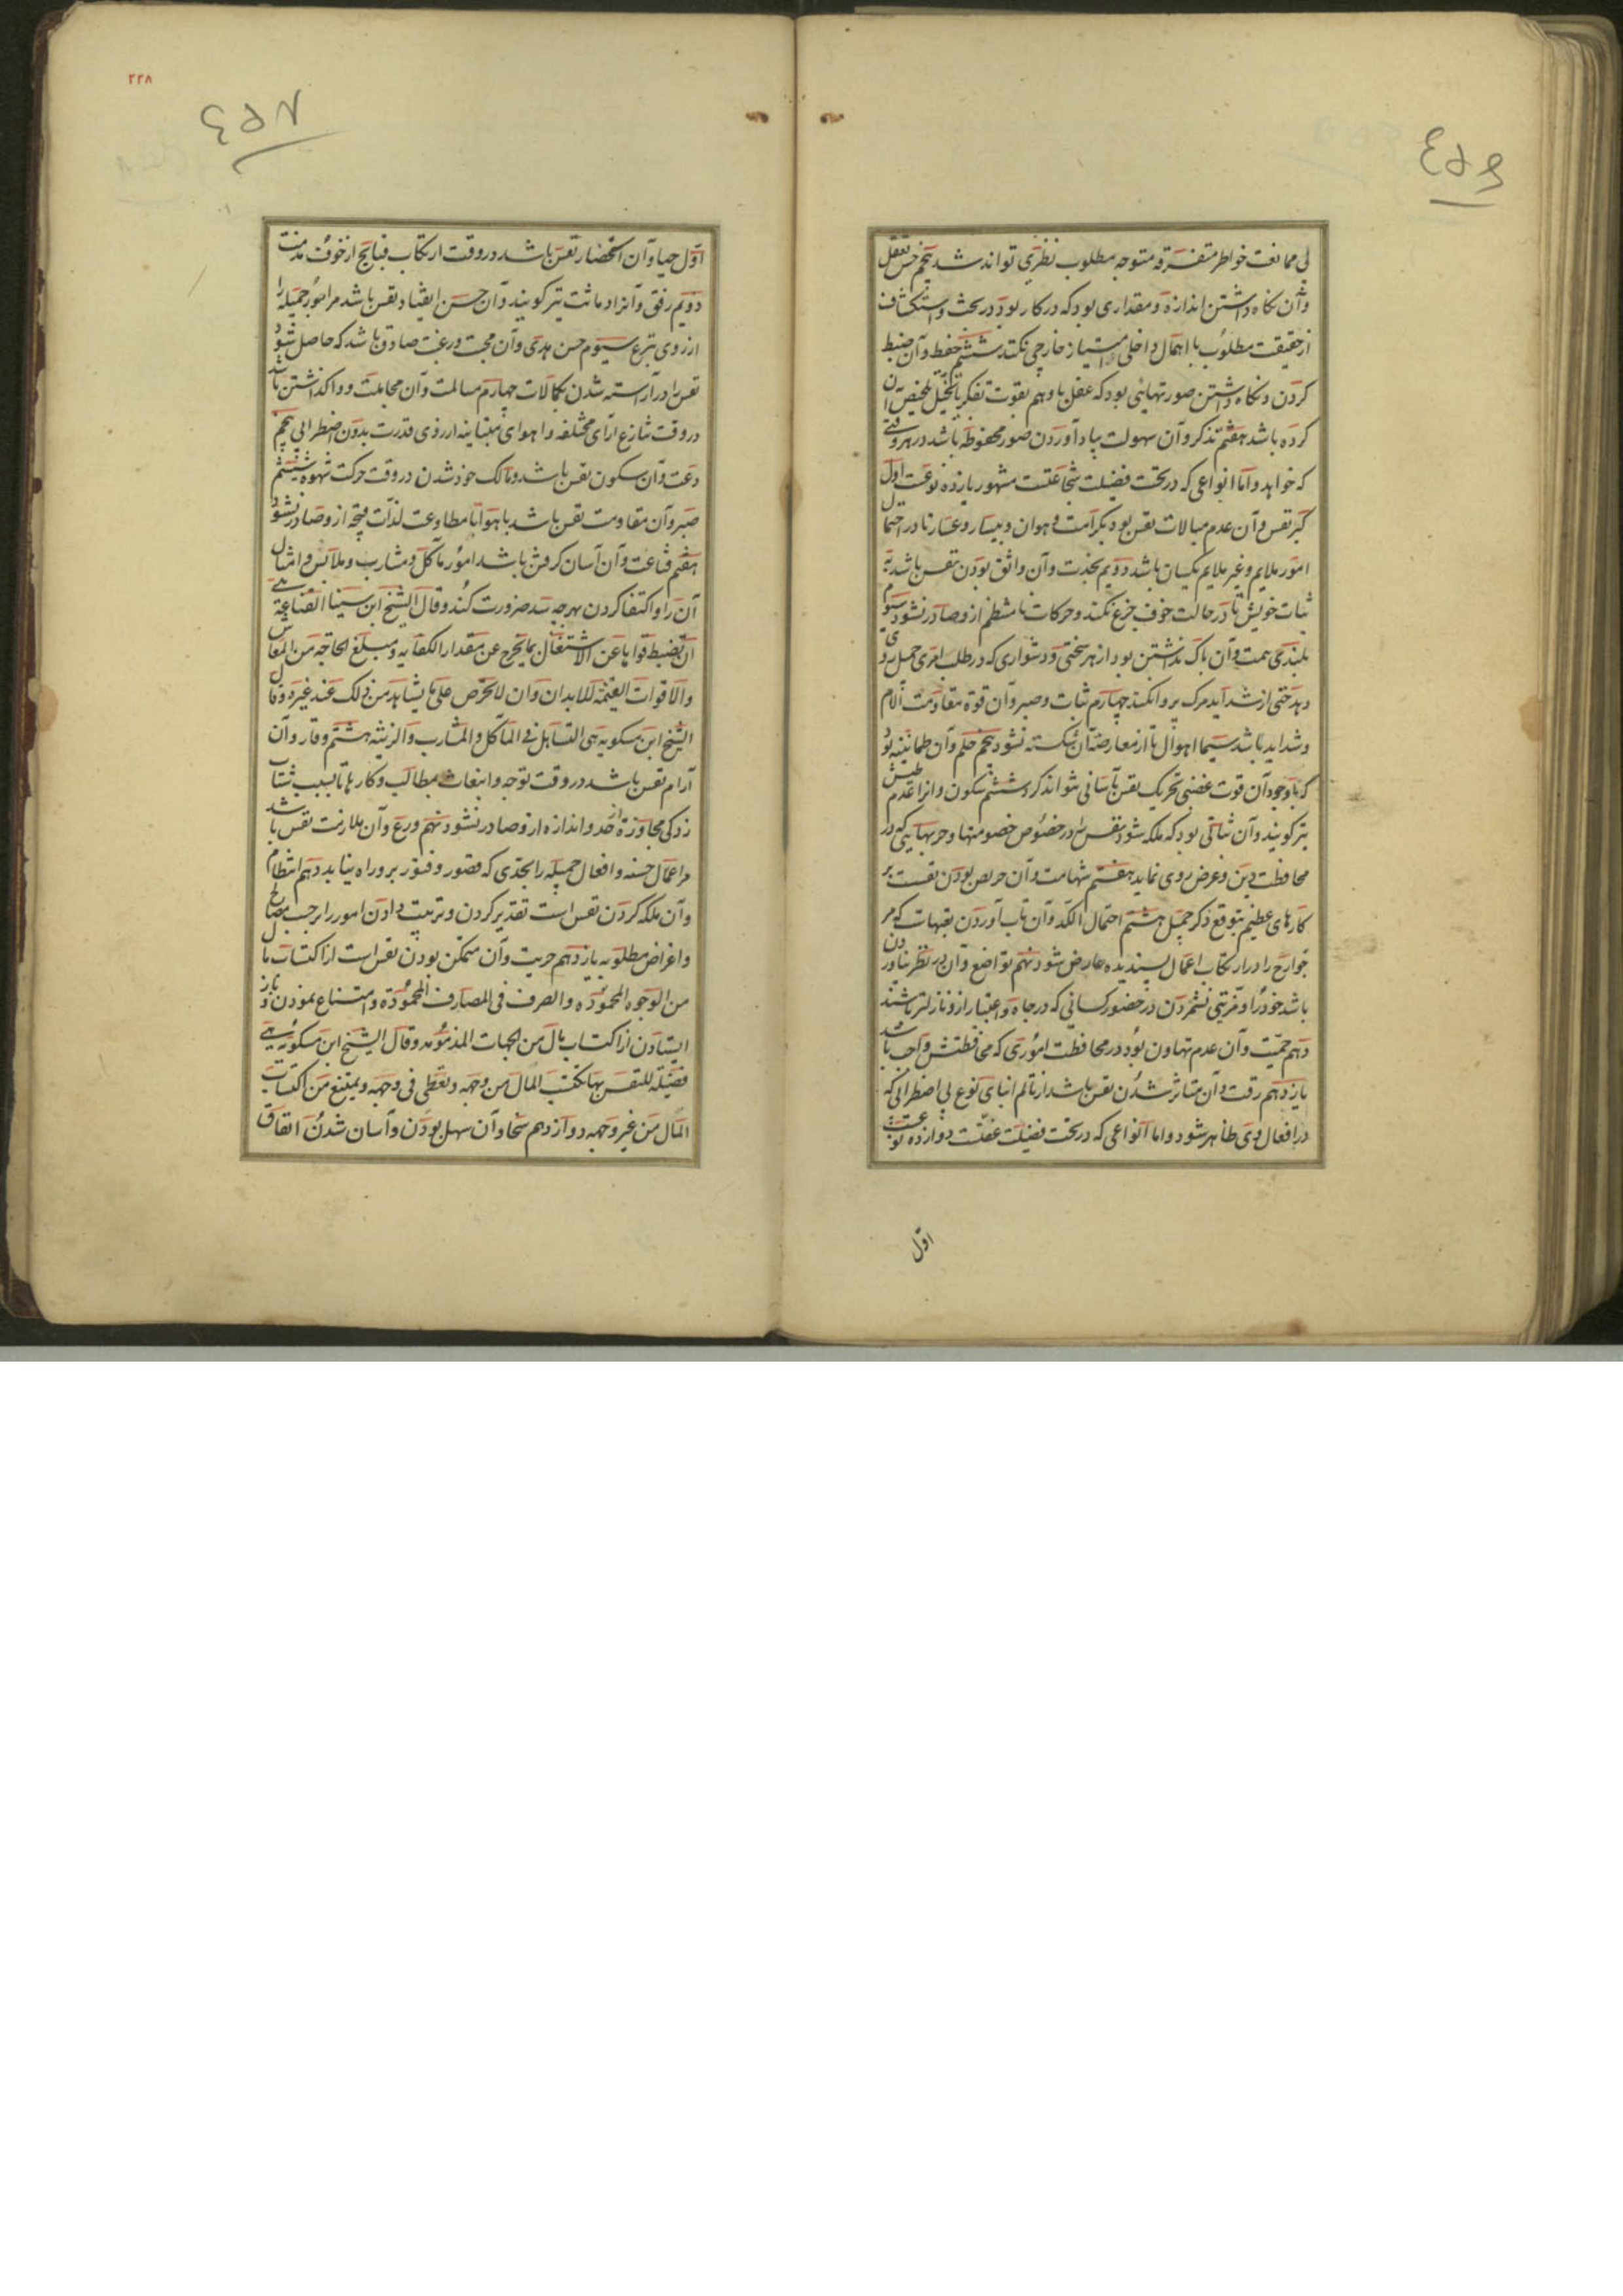 بی ممانعت خواطر متفرقه متوجه مطلوب نظری تواند شد پنجم حسن تعقل
وآن نگاه داشتن اندازه ومقداری بود که در کار بود در بحث واستکشاف
از حقیقت مطلوب با اهمال داخلی خارجی نکند ششم حفظ وآن ضبط
کردن ونگاه داشتن صورتهایی بود که عقل یا وهم بقوت تفکر یا تخیل تلخیص آن
کرده باشد هفتم تذکر وآن سهولت بیاد آوردن صور محفوظه باشد در هر وقتی
که خواهد واما انواعی که در تحت فضیلت شجاعتست مشهور یازده نوعست اول
کبر نفس وآن عدم مبالات نفس بود بکرامت وهوان ویسار وعسار تا در احتمال
امور ملایم وغیر ملایم یکسان باشد دویم نجدت وآن واثق بودن نفس باشد به
ثبات خویش تا در حالت خوف جزع نکند وحرکات نامنتظم ازو صادر نشود سیوم
بلندی همت وآن باک نداشتن بود از هر سختی ودشواری که در طلب امری جمیل
حتی از شداید مرک پروا نکند چهارم ثبات وصبر وآن قوة مقاومت آلام
وشداید باشد سیما اهوال تا از معارضه آن شکسته نشود پنجم حلم وآن طمانینه بود
که با وجود آن قوت غضبی تحریک نفس بآسانی نتواند کرد ششم سکون وآنرا عدم طیش
نیز کویند وآن ثباتی بود که ملکه شود نفس را در خصوص خصومتها وحربهایی که در
محافظت دین وعرض روی نماید هفتم شهامت وآن حریص بودن نفست بر
کارهای عظیم بتوقع ذکر جمیل هشتم احتمال الکد وآن تاب آوردن تعبهات که مر
جوارح را در ارتکاب اعمال پسندیده عارض شود نهم تواضع وآن در نظر نیاوردن
باشد خود را ومزیتی نشمردن در حضور کسانی که در جاه واعتبار ازو نازلتر باشند
دهم حمیت وآن عدم تهاون بود در محافظت اموری که محافظتش واجب باشد
یازدهم رقت وآن متاثر شدن نفس باشد از تالم ابنای نوع بی اضطرابی که
در افعال وی ظاهر شود واما انواعی که در تحت فضیلت عفتست دوازده نوعست
اول
٢٢٨
اول حیا وآن استحضار نفس باشد در وقت ارتکاب قبایح از خوف مذمت
دویم رفق وآنرا دماثت نیز کویند وآن حسن انقیاد نفس باشد مر امور جمیله را
از روی تبرع سیوم حسن هدی وآن محبت ورغبت صادق باشد که حاصل شود
نفس را در آراسته شدن بکمالات چهارم مسالمت وآن مجاملت وواکذاشتن باشد
در وقت تنازع آرای مختلفه واهوای متباینه از روی قدرت بدون اضطرابی پنجم
دعت وآن سکون نفس باشد ومالک خود شدن در وقت حرکت شهوة ششم
صبر وآن مقاومت نفس باشد با هوا تا مطاوعت لذات قبیحه ازو صادر نشود
هفتم قناعت وآن آسان کرفتن باشد امور مآکل ومشارب وملابس وامثال
آن را واکتفا کردن بهرچه سد ضرورت کند وقال الشیخ ابن سینا القناعة هی
ان تضبط قواها عن الاشتغال بما یخرج عن مقدار الکفایه ومبلغ الحاجة من المعاش
والاقوات المقیمة للابدان وان لا تحرص علی ما یشاهد من ذلک عند غیره وقال
الشیخ ابن مسکویه هی التساهل فی المآکل والمشارب والزینه هشتم وقار وآن
آرام نفس باشد در وقت توجه وانبعاث بمطالب وکارها تا بسبب شتاب
زدکی مجاوزة حد واندازه ازو صادر نشود نهم ورع وآن ملازمت نفس باشد
مر اعمال حسنه وافعال جمیله را بحدی که قصور وفتور برو راه نیابد دهم انتظام
وآن ملکه کردن نفس است تقدیر کردن وترتیب دادن امور را بر حسب مصالح
واغراض مطلوبه یازدهم حریت وآن متمکن بودن نفس است از اکتساب مال
من الوجوه المحموده والصرف فی المصارف المحمودة وامتناع نمودن وباز
ایستادن از اکتساب مال من الجهات المذمومه وقال الشیخ ابن مسکویه هی
فضیلة للنفس بها یکتسب المال من وجهه ویعطی فی وجهه ویمتنع من اکتساب
المال من غیر وجهه دوازدهم سخا وآن سهل بودن وآسان شدن انفاق